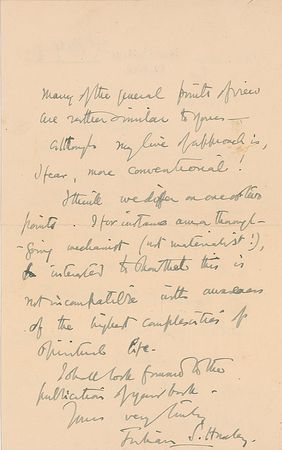 many of the general points of view
are rather similar to yours —
although my line of approach is,
I fear, more conventional!
I think we differ on one or two
points. I for instance am a thorough-
-going mechanist (not materialist!),
interested to show that this is
not incompatible with awareness
of the highest complexities of
spiritual life.
I shall look forward to the
publication of your book.
Yours very truly
Julian S. Huxley.